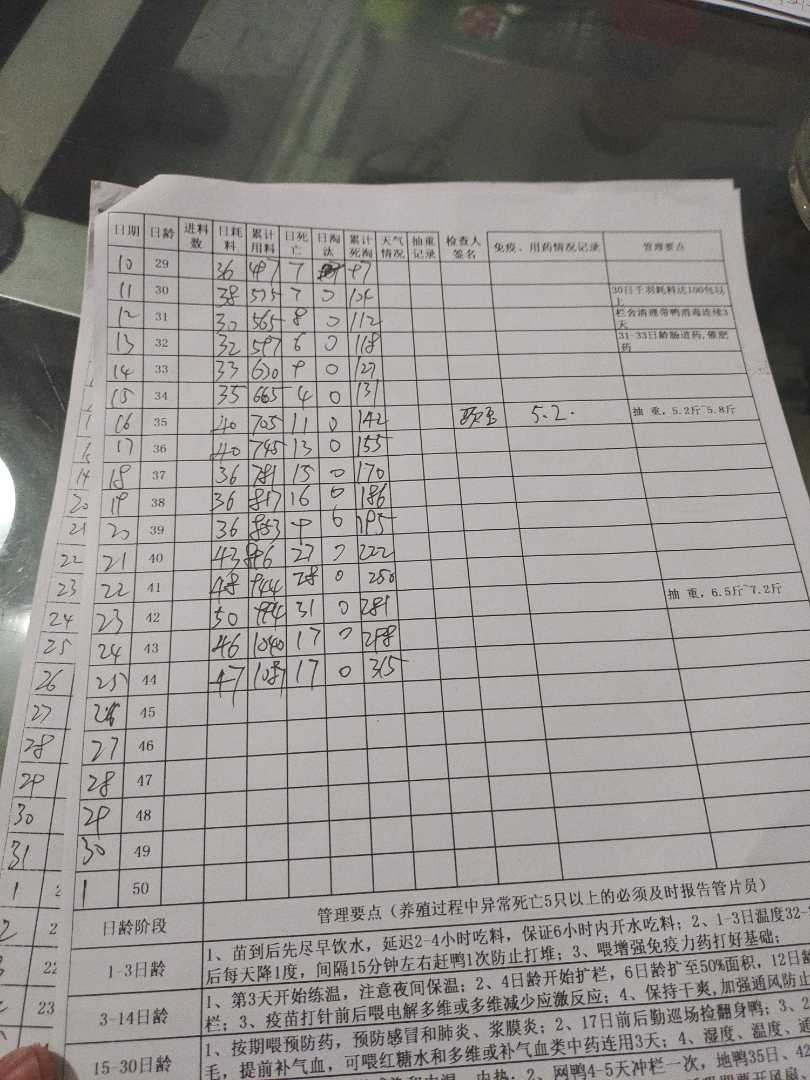 日期 日龄 进料数 日耗料 累计用料 日死亡 日淘汰 累计死淘 天气情况 抽重记录 检查人签名 免疫、用药情况记录 管理要点
10 29 36 497 7 97
11 30 38 535 7 0 104 30日千羽耗料达100包以上
12 31 30 565 8 0 112 栏舍清理带鸭消毒连续3天
13 32 32 597 6 0 118 31-33日龄肠道药,催肥药
14 33 33 630 9 0 127
15 34 35 665 4 0 131
16 35 40 705 11 0 142 5.2. 抽 重，5.2斤~5.8斤
17 36 40 745 13 0 155
18 37 36 781 15 0 170
19 38 36 817 16 0 186
20 39 36 853 9 0 195
21 40 43 896 27 0 222
22 41 48 944 28 0 250 抽 重，6.5斤~7.2斤
23 42 50 994 31 0 281
24 43 46 1040 17 0 298
25 44 47 1087 17 0 315
26 45
27 46
28 47
29 48
30 49
1 50
日龄阶段 管理要点（养殖过程中异常死亡5只以上的必须及时报告管片员）
1-3日龄 1、苗到后先尽早饮水，延迟2-4小时吃料，保证6小时内开水吃料；2、1-3日温度32-
后每天降1度，间隔15分钟左右赶鸭1次防止打堆；3、喂增强免疫力药打好基础；
3-14日龄 1、第3天开始练温，注意夜间保温；2、4日龄开始扩栏，6日龄扩至50%面积，12日龄
栏；3、疫苗打针前后喂电解多维或多维减少应激反应；4、保持干爽,加强通风防止
15-30日龄 1、按期喂预防药，预防感冒和肺炎、浆膜炎；2、17日前后勤巡场捡翻身鸭；3、2
毛，提前补气血，可喂红糖水和多维或补气血类中药连用3天；4、湿度、温度、通
2、网鸭4-5天冲栏一次，地鸭35日、42
20
21
22
23
24
25
26
27
28
29
30
31
1
2